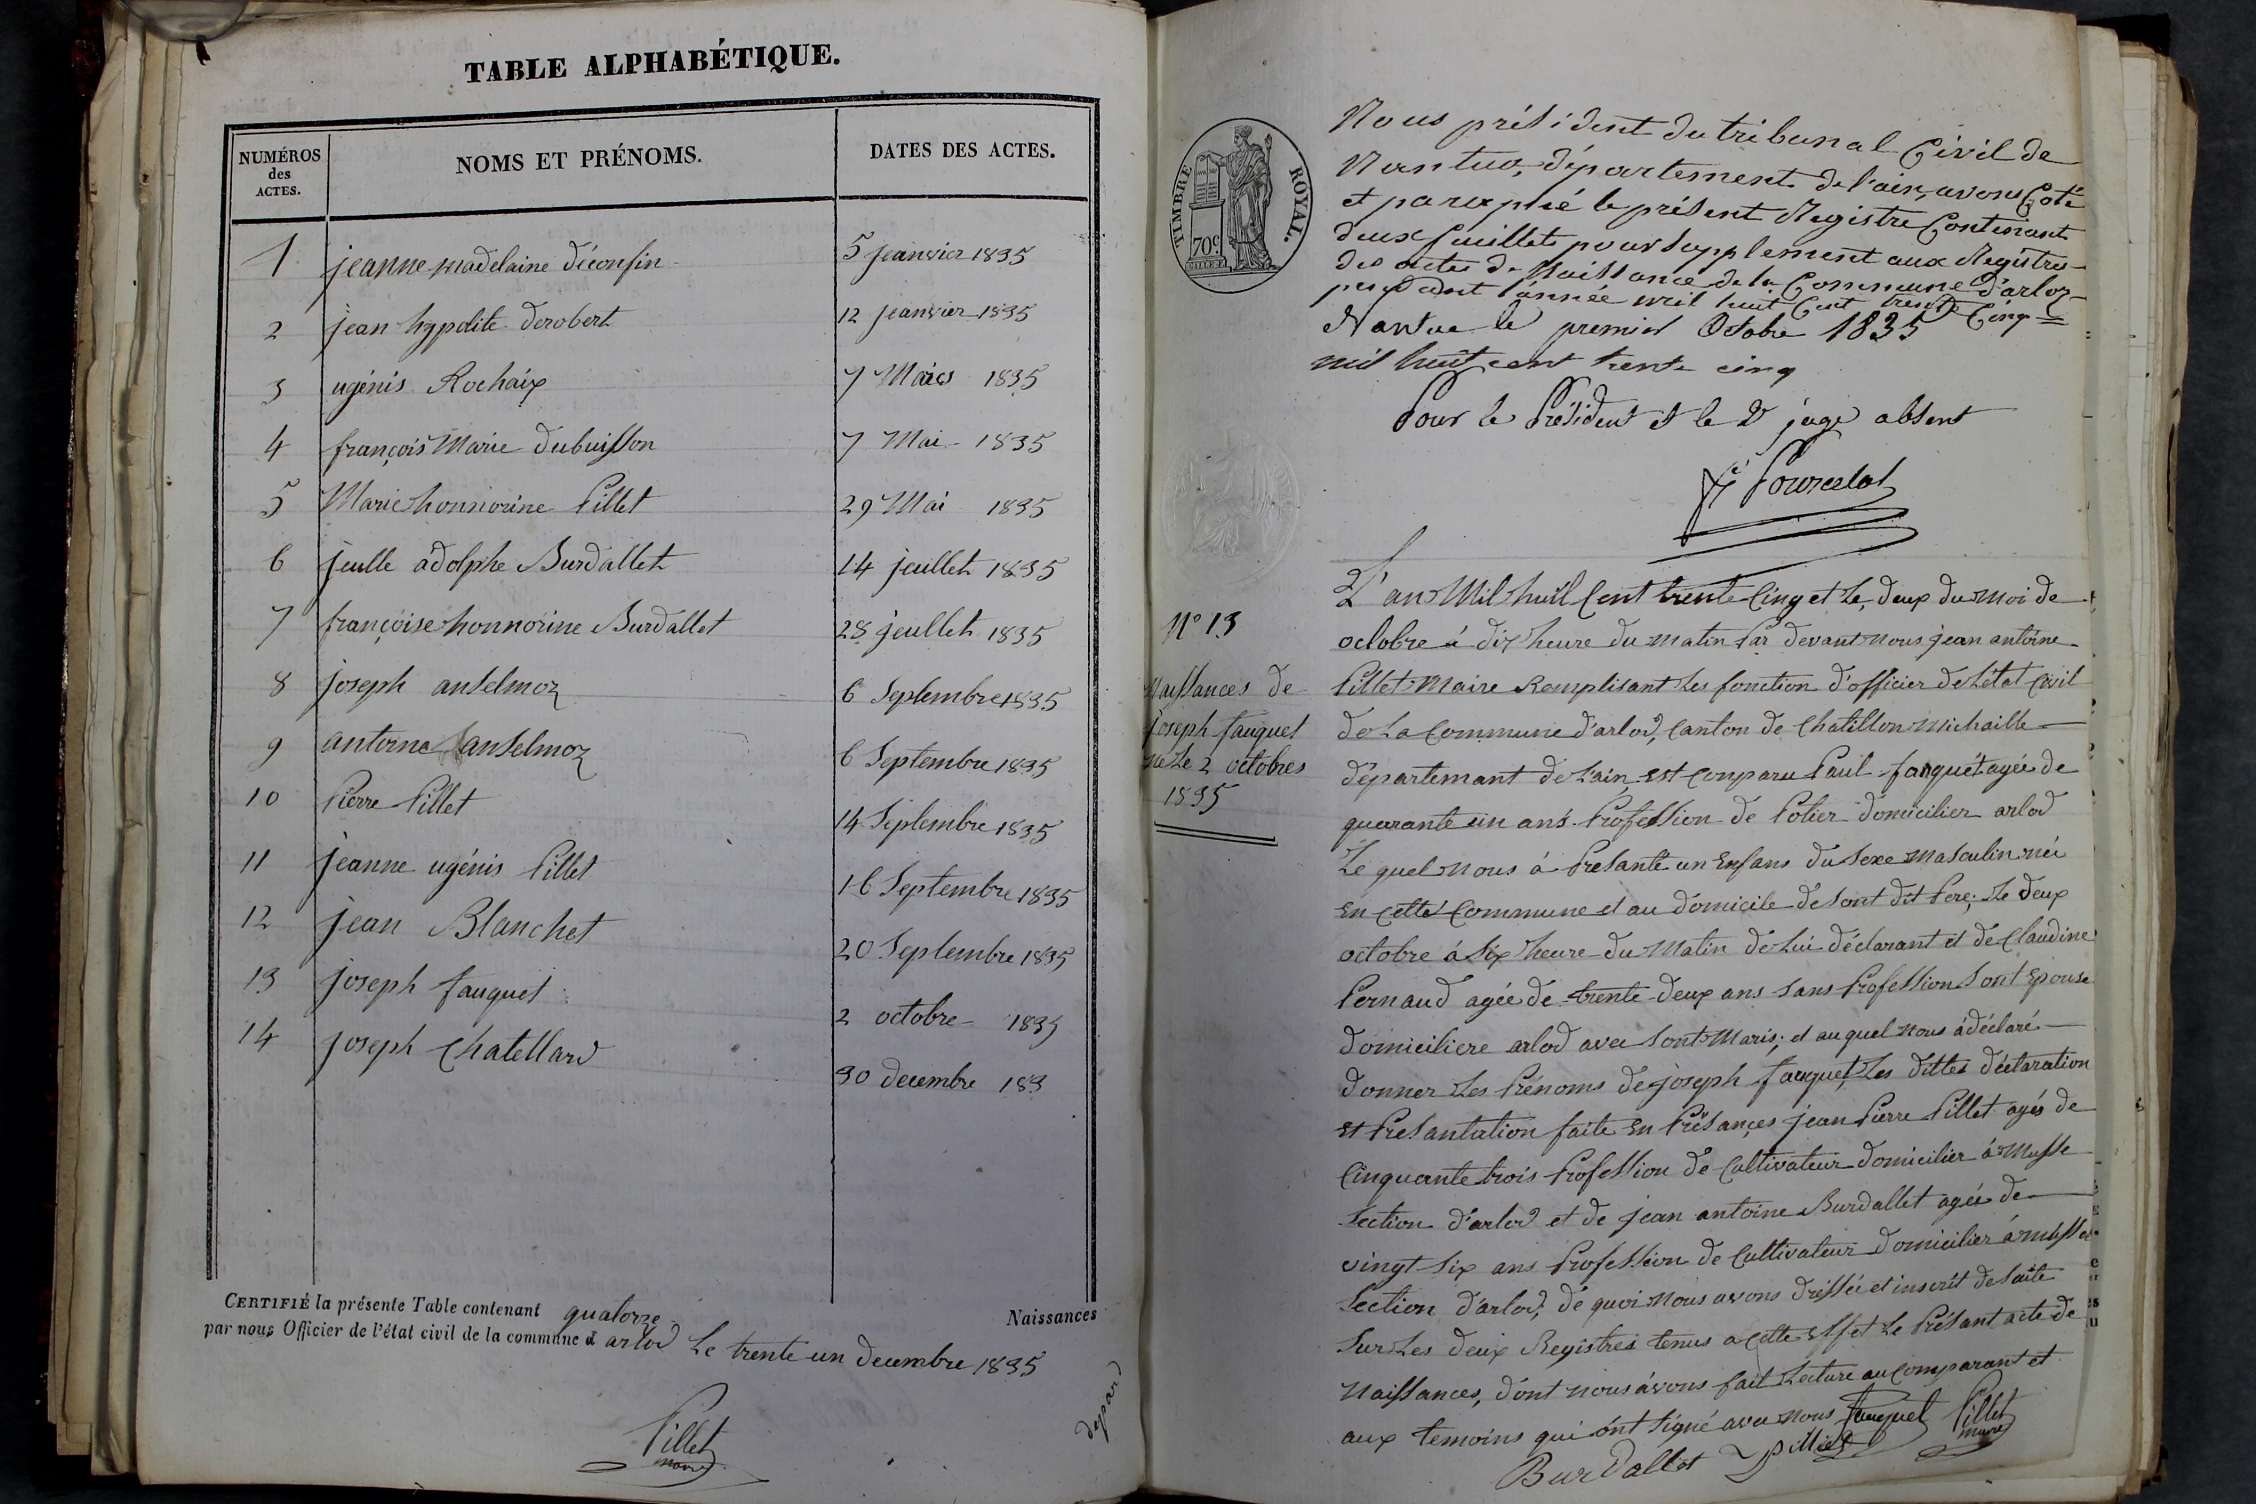 TABLE ALPHABÉTIQUE.
NUMÉROS des ACTES. NOMS ET PRÉNOMS. DATES DES ACTES.
1 jeanne madelaine déconfin 5 jeanvier 1835
2 jean hypolite derobert 12 jeanvier 1835
3 ugénis Rochaix 7 Mars 1835
4 françois Marie dubuisson 7 Mai 1835
5 Marie honnorine Pillet 29 Mai 1835
6 julle adolphe Burdallet 14 jeuillet 1835
7 françoise honnorine Burdallet 28 jeullet 1835
8 joseph anselmoz 6 Septembre 1835
9 antoine anselmoz 6 Septembre 1835
10 Pierre Pillet 14 Septembre 1835
11 jeanne ugénis Pillet 16 Septembre 1835
12 jean Blanchet 20 Septembre 1835
13 joseph fauquet 2 octobre 1835
14 joseph Chatellard 30 decembre 183
CERTIFIÉ la présente Table contenant quatorze Naissances
par nous Officier de l'état civil de la commune d arlod Le trente un decembre 1835
Pillet
maire
TIMBRE ROYAL.
70c
Nous président du tribunal Civil de
Nantua, département de l'ain, avons Coté
et paraphé le présent Registre Contenant
deux feuillets pour Supplement aux Registres
des actes de Naissance de la Commune d'arloz
pendant l'année mil huit Cent trente Cinq
Nantua le premier Octobre 1835
mil huit cent trente cinq
Pour le Président et le D juge absent
N° 13
Naissances de
joseph fauquet
né Le 2 octobres
1835
L'an Mil huit Cent trente Cinq et Le deux du moi de
octobre à dix heure du matin Par devant nous jean antoine
Pillet Maire Remplisant Les fonction d'officier de L'état Civil
de La Commune d'arlod, Canton de Chatillon Michaille
départemant de L'ain, est Comparu Paul fauquet agée de
quarante un ans Profession de Potier domicilier arlod
Le quel nous à Presanté un Enfans du Sexe masculin néé
En Cette Commune et au domicile de Sont dit Pere; Le deux
octobre à Six heure du Matin de Lui déclarant et de Claudine
Pernaud agée de trente deux ans Sans Profession Sont Epouse
domiciliere arlod avec Sont Maris; et au quel nous à déclaré
donner Les Prénoms de joseph fauquet, Les dittes déclaration
Et Presantation faite En Présances jean Pierre Pillet agés de
Cinquante trois Profession de Cultivateur domicilier à Musse
Section d'arlod et de jean antoine Burdallet agée de
vingt Six ans Profession de Cultivateur domicilier à musse
Section d'arlod, de quoi nous avons dressée et inscrit de Suite
Sur Les deux Registres tenus a cette Effet Le Présant acte de
Naissances, dont nous avons fait Lecture au Comparant et
aux temoins qui ont Signé avec nous fauquet Pillet
maire
Burdallet pillet